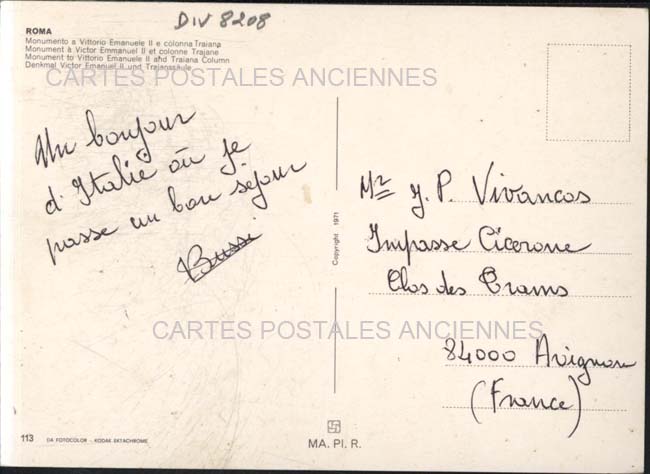 DIV 8208
ROMA
Monumento a Vittorio Emanuele II e colonna Traiana
Monument à Victor Emmanuel II et colonne Trajane
Monument to Vittorio Emanuele II and Traiana Column
Denkmal Victor Emanuel II und Trajanssäule
CARTES POSTALES ANCIENNES
Un bonjour
d'Italie où je
passe un bon séjour
Bussi
Copyright 1971
Mr J. P. Vivancos
Impasse Cicerone
Clos des Trams
CARTES POSTALES ANCIENNES
84000 Avignon
(France)
113 DA FOTOCOLOR - KODAK EKTACHROME
MA. PI. R.